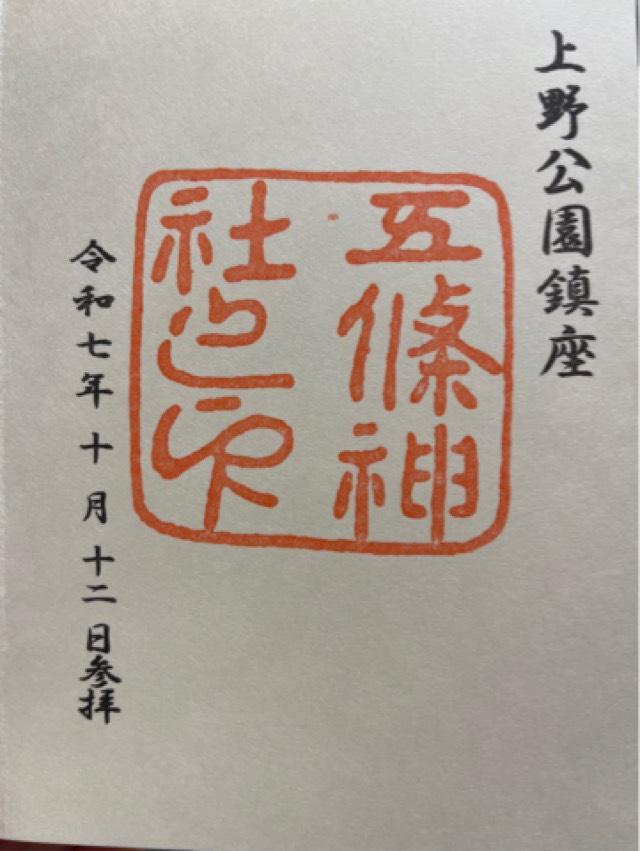 上野公園鎮座
五條神
社之印
令和七年十月十二日参拝